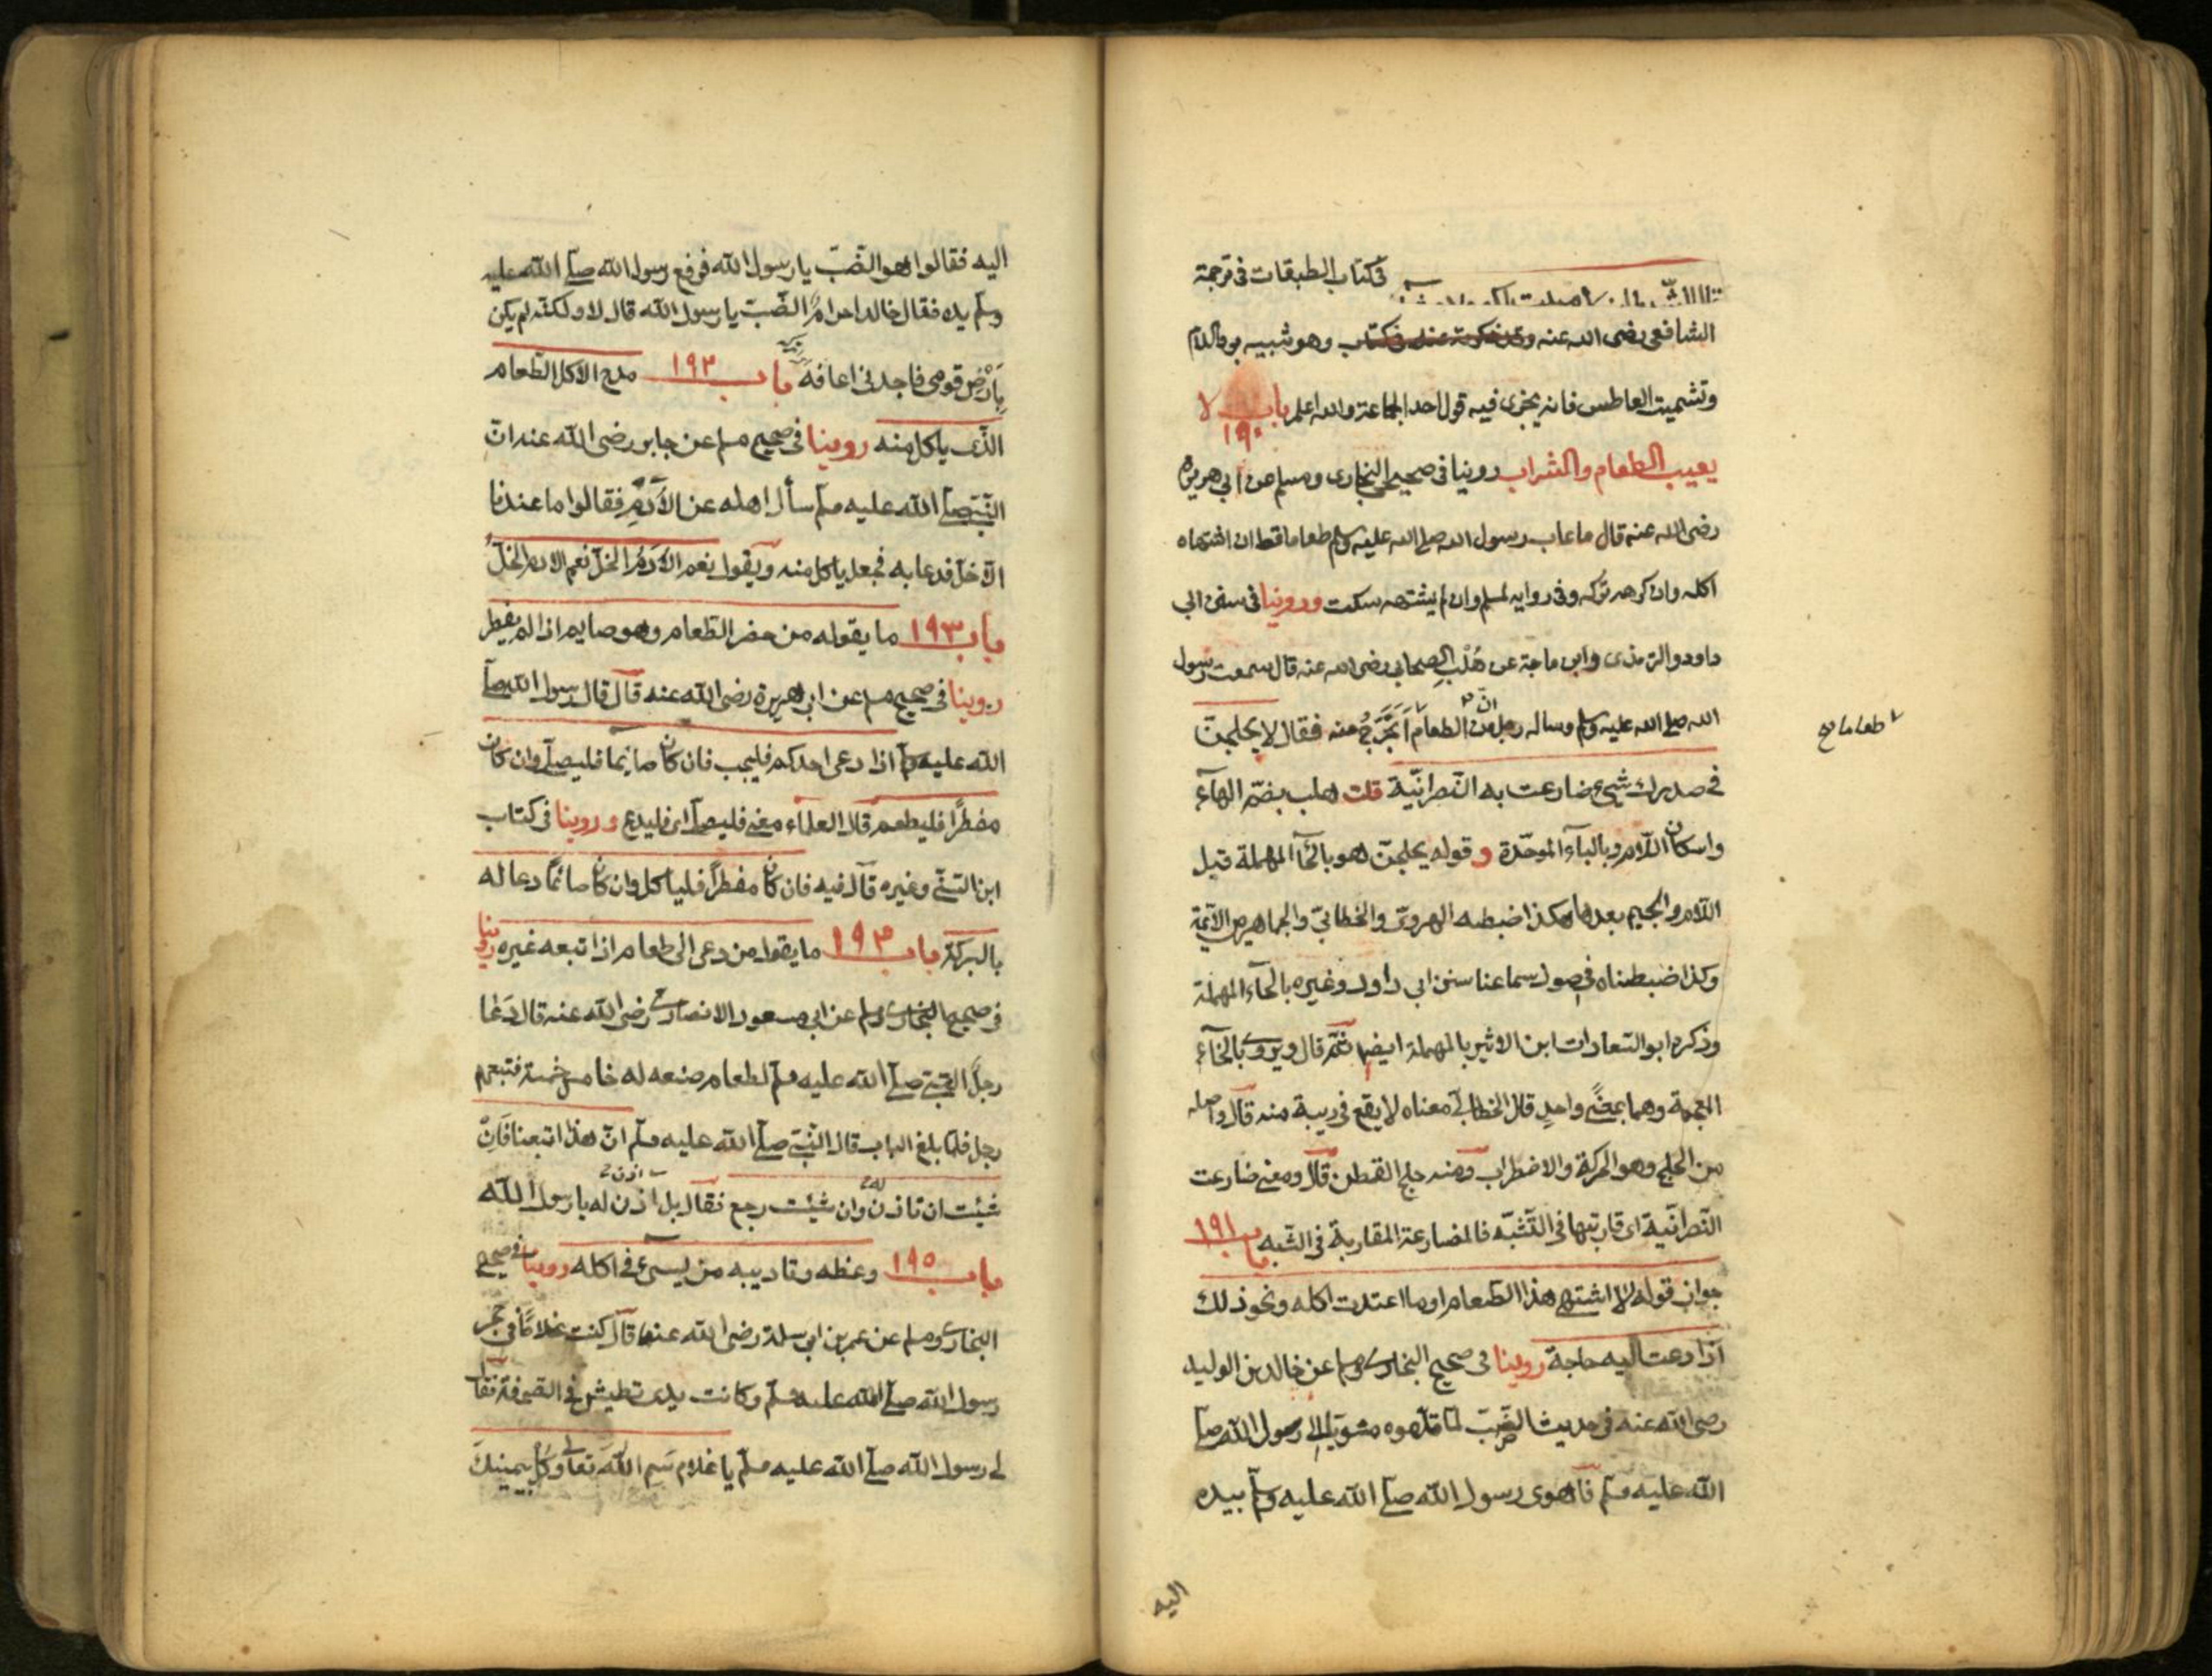 في كتاب الطبقات في ترجمة
الشافعي رضى الله عنه وهو شبيه برد السلام
وتشميت العاطس فانه يجزى فيه قول احد الجماعة والله اعلم باب ١٩٠ لا
يعيب الطعام والشراب روينا فى صحيحى البخارى ومسلم عن ابي هريرة
رضى الله عنه قال ما عاب رسول الله صلى الله عليه وسلم طعاما قط ان اشتهاه
اكله وان كرهه تركه وفى رواية لمسلم وان لم يشتهه سكت وروينا فى سنن ابي
داود والترمذى وابن ماجة عن هُلْبِ الصحابي رضى الله عنه قال سمعت رسول
الله صلى الله عليه وسلم وساله رجل ان من الطعام أَتَحَرَّجُ منه فقال لا يحلجن
طعاما
في صدرك شيئ ضارعت به النّصرانيّة قلت هلب بضمّ الهآء
واسكان اللام وبالبآء الموحّدة وقوله يحلجنّ هو بالحآ المهملة قبل
اللام والجيم بعدها هكذا ضبطه الهروىّ والخطابيّ والجماهير من الايمة
وكذا ضبطناه في اصول سماعنا سنن ابي داود وغيره بالحآء المهملة
وذكره ابو السّعادات ابن الاثير بالمهملة ايضا ثمّ قال ويروى بالخآء
المعجمة وهما بمعنًى واحدٍ قال الخطابيّ معناه لا يقع في ريبة منه قال واصله
من الحلج وهو الحركة والاضطراب ومنه حلج القطن قال ومعنى ضارعت
النّصرانيّة اى قاربتها فى التّشبّه فالمضارعة المقاربة في الشبه باب ١٩١
جواز قوله لا اشتهى هذا الطّعام او ما اعتدت اكله ونحو ذلك
اذا دعت اليه حاجة روينا فى صحيح البخارى ومسلم عن خالد بن الوليد
رضى الله عنه فى حديث الضّبّ لمّا قدّموه مشويّا الى رسول الله صلى
الله عليه وسلم فاهوى رسول الله صلى الله عليه وسلم بيده
اليه
اليه فقالوا هو الضّبّ يا رسول الله فرفع رسول الله صلى الله عليه
وسلم يده فقال خالد احرامٌ الضّبّ يا رسول الله قال لا ولكنّه لم يكن
بِأَرْضِ قومى فاجدنى اعافه باب ١٩٢ مدح الاكل الطّعام
الّذى ياكل منه روينا فى صحيح مسلم عن جابر رضى الله عنه انّ
النّبيّ صلى الله عليه وسلم سأل اهله عن الأُدُمِ فقالوا ما عندنا
الّا خلّ فدعا به فجعل ياكل منه ويقول نعم الأُدمُ الخلّ نعم الادم الخلّ
باب ١٩٣ ما يقوله من حضر الطّعام وهو صايم اذا لم يفطر
روينا فى صحيح مسلم عن ابي هريرة رضى الله عنه قال قال رسول الله صلى
الله عليه وسلم اذا دعى احدكم فليجب فان كان صائما فليصلّ وان كان
مفطرًا فليطعم قال العلماء معنى فليصلّ اى فليدع وروينا فى كتاب
ابن السّنّى وغيره قال فيه فان كان مفطرًا فلياكل وان كان صائمًا دعا له
بالبركة باب ١٩٤ ما يقول من دعى الى طعام اذا تبعه غيره روينا
فى صحيح البخارى ومسلم عن ابي مسعود الانصارى رضى الله عنه قال دَعَا
رجل النّبىّ صلى الله عليه وسلم لطعام صنعه له خامس خمسة فتبعهم
رجل فلمّا بلغ الباب قال النّبيّ صلى الله عليه وسلم انّ هذا اتبعنا فَإِنْ
شئت ان تاذن له وان شئت رجع فقال بل اذن له يا رسول الله
باب ١٩٥ وعظه وتاديبه من يسىء فى اكله روينا فى صحيحى
البخارى ومسلم عن عمر بن ابي سلمة رضى الله عنهما قال كنت غلامًا فى حجر
رسول الله صلى الله عليه وسلم وكانت يدى تطيش فى الصحفة فقال
لى رسول الله صلى الله عليه وسلم يا غلام سَمِ اللهَ تعالى وَكُلْ بيمينك